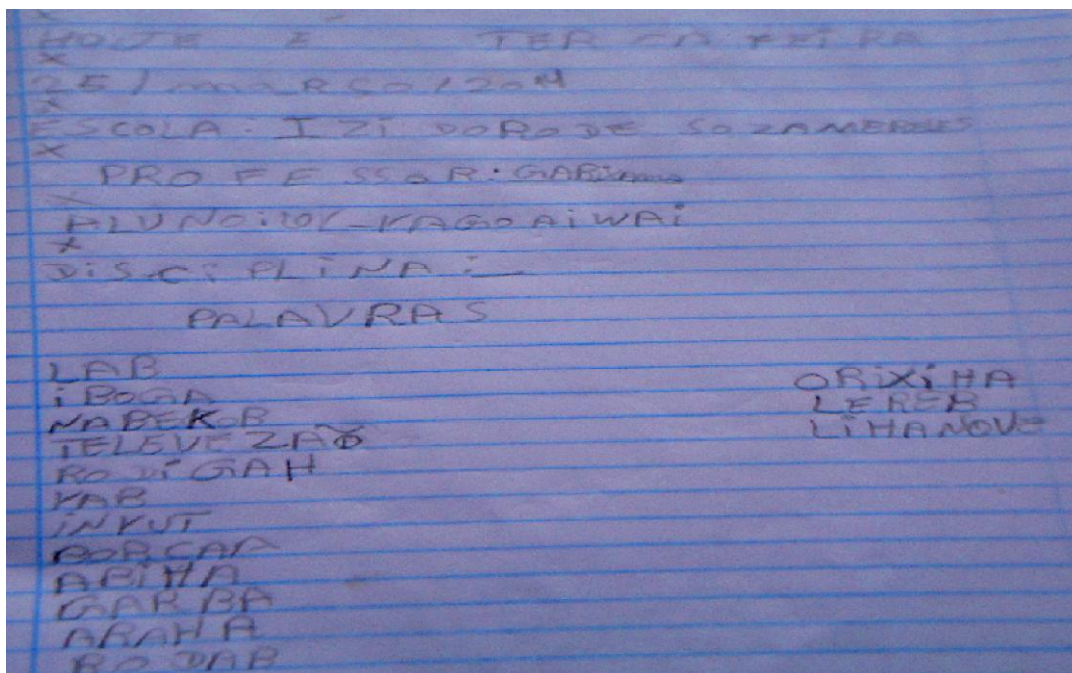 HOJE E TER CA FEIRA
25 / maRSo / 20
ESCOLA: IZI DORO DE SOZAMERELES
PRO FE SSOR:
ALUNO: KAGO AiWAi
DiSCiPLiNA:
PALAVRAS
LAB
iBOGA
NABEKOB
TELEVEZAO
RODiGAH
KAB
iNKUT
BOBCAA
ABiHA
GARBA
ARAHA
RODAB
ORiXiHA
LEREB
LiHANOVE